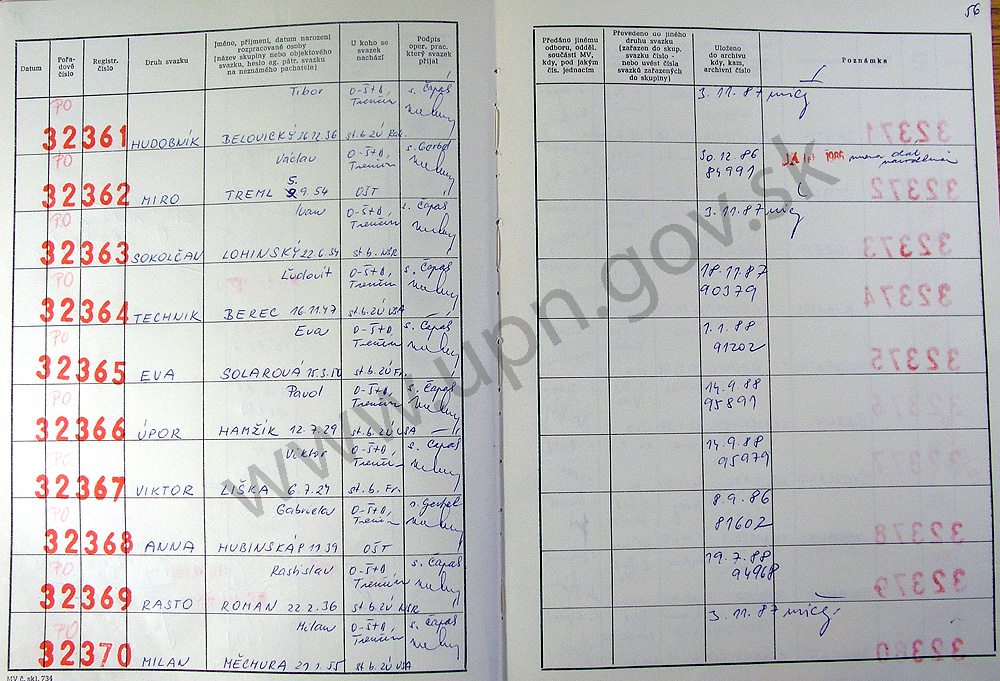 56
Datum
Pořadové číslo
Registr. číslo
Druh svazku
Jméno, příjmení, datum narození rozpracované osoby (název skupiny nebo objektového svazku, heslo ag. pátr. svazku na neznámého pachatele)
U koho se svazek nachází
Podpis oper. prac. který svazek přijal
Předáno jinému odboru, odděl. součásti MV, kdy, pod jakým čís. jednacím
Převedeno do jiného druhu svazku (zařazen do skup. svazku číslo - nebo uvést čísla svazků zařazených do skupiny)
Uloženo do archivu kdy, kam, archivní číslo
Poznámka
PO Tibor O-ŠtB, s. Čapaš 3. 11. 87
32361 HUDOBNÍK BELOVICKÝ 26.12.36 Trenčín st.b.ZÚ Rak.
PO Václav O-ŠtB, s. Gerbel 30. 12 86
32362 MIRO TREML 5. 9. 54 Trenčín OŠT 84991
PO Ivan O-ŠtB, s. Čapaš 3. 11. 87
32363 SOKOLČAN LOHINSKÝ 22.6.34 Trenčín st.b. NSR
PO Ľudovít O-ŠtB, s. Čapaš 18. 11. 87
32364 TECHNIK BEREC 16.11.47 Trenčín st.b.ZÚ USA 90379
PO Eva O-ŠtB, s. Čapaš 1. 1. 88
32365 EVA SOLAROVÁ Trenčín st.b.ZÚ Fr. 91202
PO Pavol O-ŠtB, s. Čapaš 14. 9. 88
32366 ÚPOR HAMŽÍK 12.7.29 Trenčín st.b.ZÚ USA 95891
PO Viktor O-ŠtB, s. Čapaš 14. 9. 88
32367 VIKTOR LIŠKA 6.7.24 Trenčín st.b. Fr. 95979
PO Gabriela O-ŠtB, s. Gerbel 8. 9. 86
32368 ANNA HUBINSKÁ Trenčín OŠT 81602
PO Rastislav O-ŠtB, s. Čapaš 19. 7. 88
32369 RASTO ROMAN 22.2.36 Trenčín st.b.ZÚ NSR 94968
PO Milan O-ŠtB, s. Čapaš 3. 11. 87
32370 MILAN MĚCHURA Trenčín st.b.ZÚ USA
MV č. skl. 734
www.upn.gov.sk